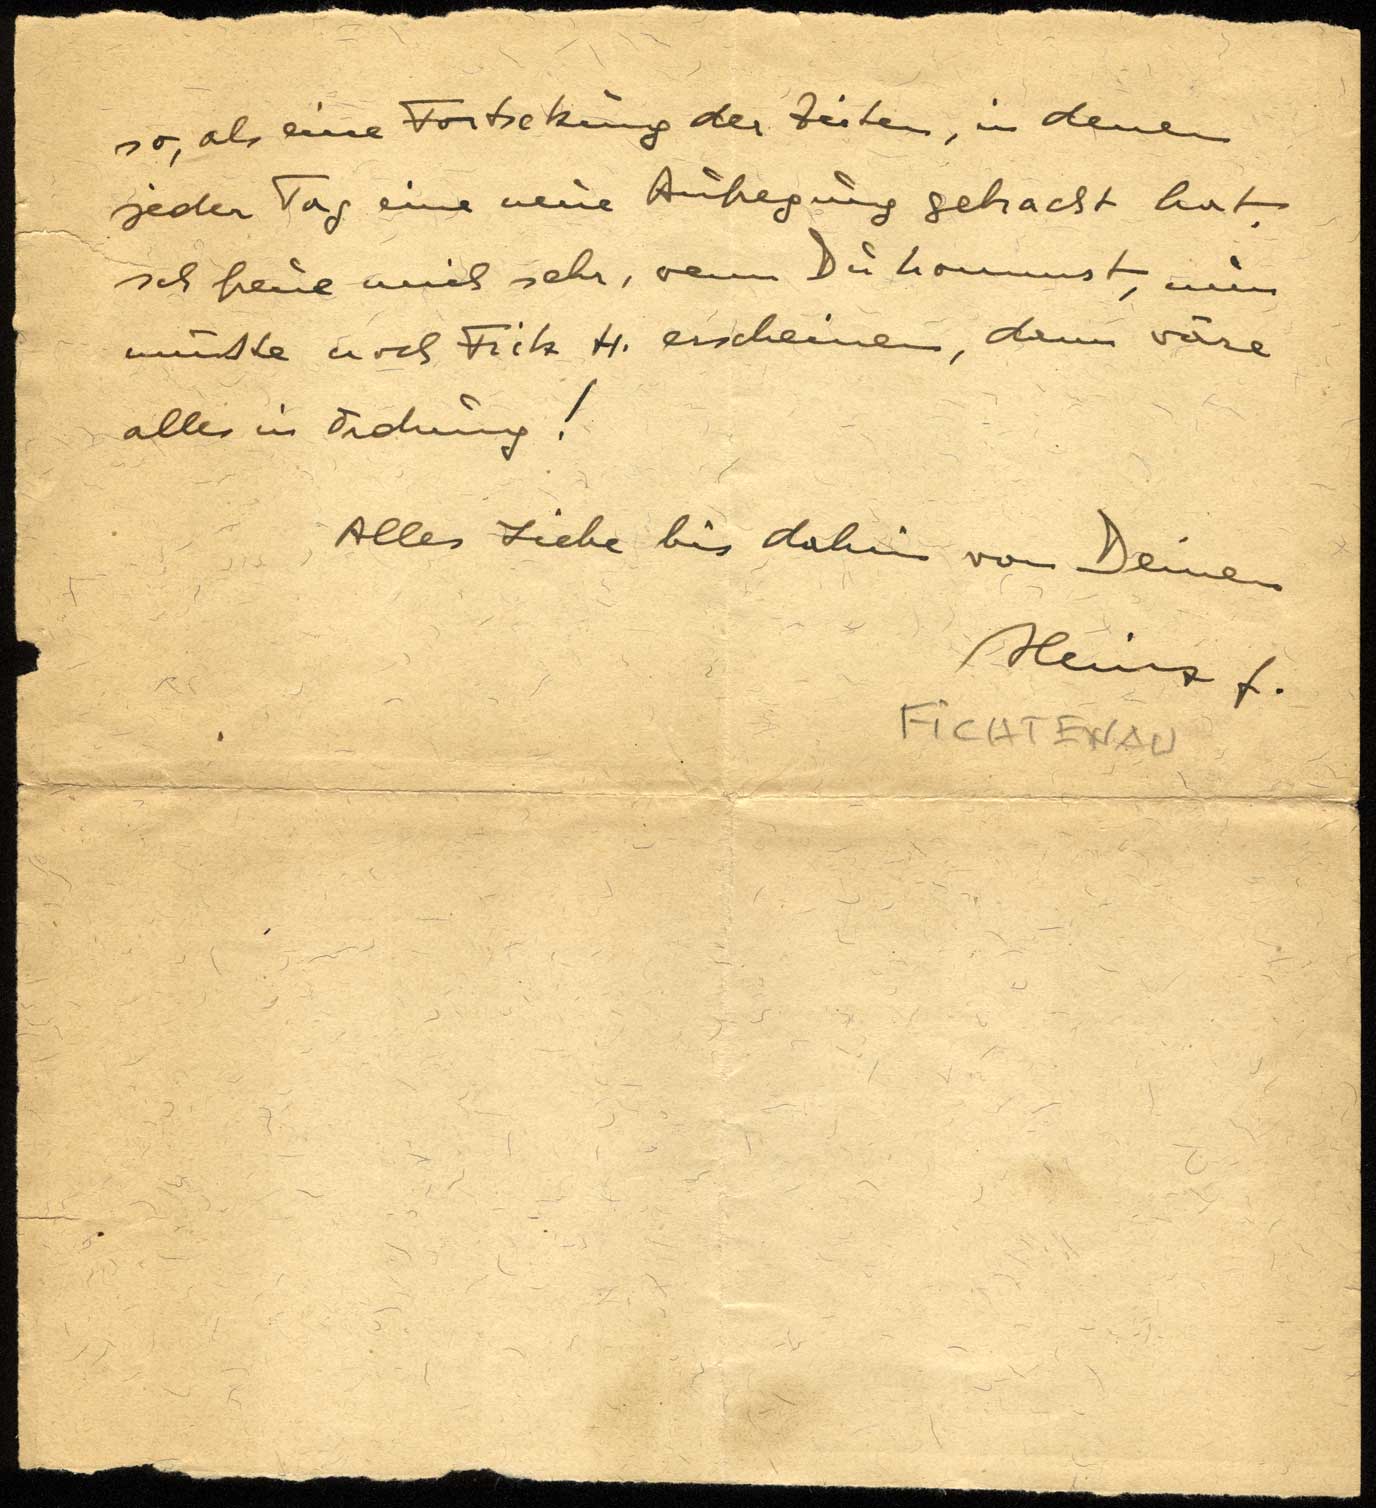 so, als eine Fortsetzung der Zeiten, in denen
jeder Tag eine neue Aufregung gebracht hat.
Ich freue mich sehr, wenn Du kommst, nun
müsste noch Fritz H. erscheinen, dann wäre
alles in Ordnung!
Alles Liebe bis dahin von Deinem
Heinz f.
FICHTENAU